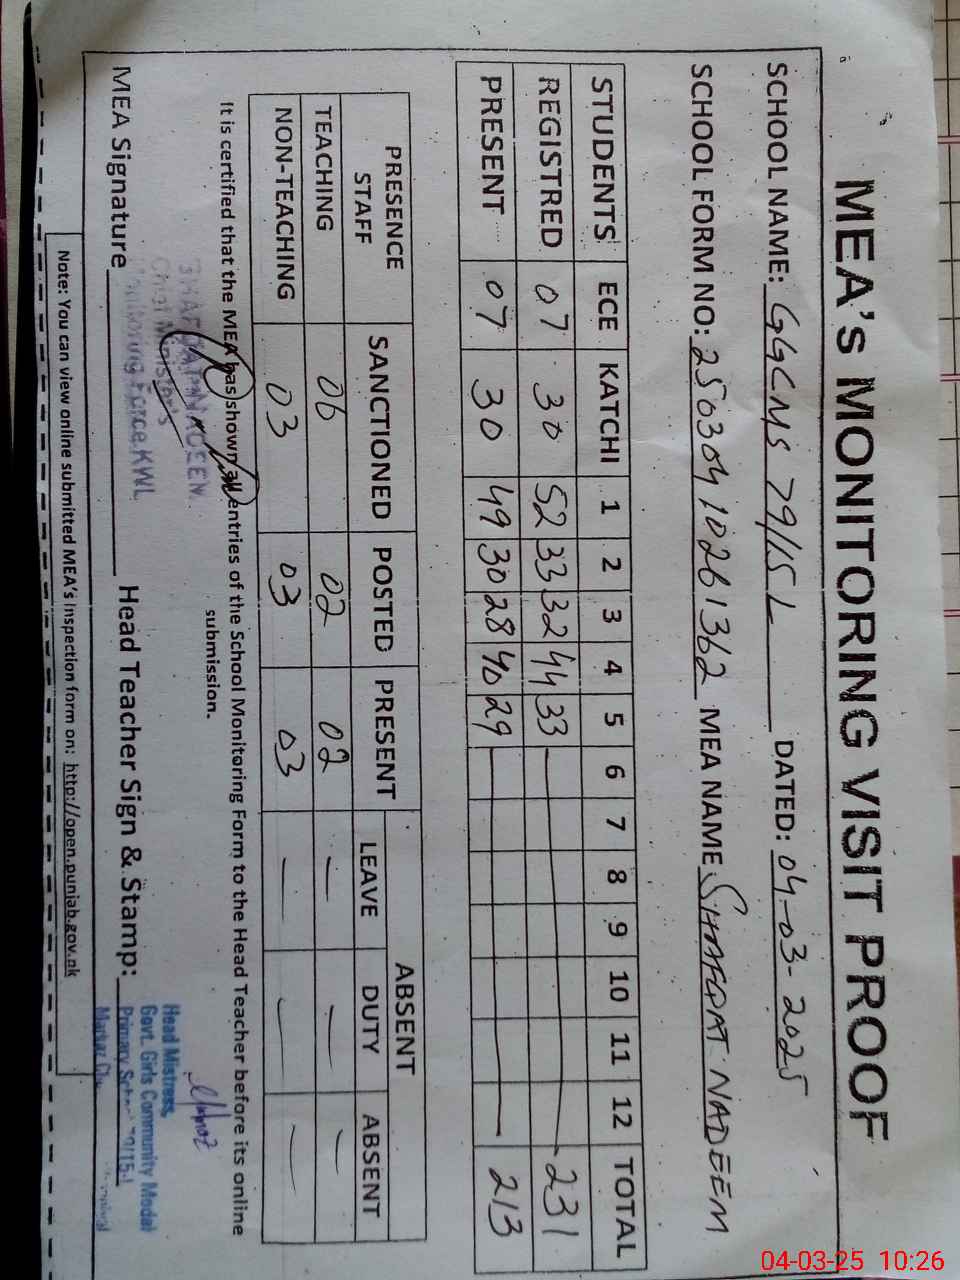 MEA's MONITORING VISIT PROOF
SCHOOL NAME: GGCMS 79/15L DATED: 04-03-2025
SCHOOL FORM NO: 25030410261362 MEA NAME SHAFQAT NADEEM
STUDENTS ECE KATCHI 1 2 3 4 5 6 7 8 9 10 11 12 TOTAL
REGISTRED 07 30 52 33 32 44 33 231
PRESENT 07 30 49 30 28 40 29 213
PRESENCE STAFF SANCTIONED POSTED PRESENT ABSENT
LEAVE DUTY ABSENT
TEACHING 06 02 02 — — —
NON-TEACHING 03 03 03 — — —
It is certified that the MEA has shown all entries of the School Monitoring Form to the Head Teacher before its online
submission.
SHAFQAT NADEEM
Chief Minister's
Monitoring Force KWL
MEA Signature Head Teacher Sign & Stamp:
Head Mistress,
Govt. Girls Community Model
Primary School 79/15-L
Markaz
Note: You can view online submitted MEA's inspection form on: http://open.punjab.gov.pk
04-03-25 10:26